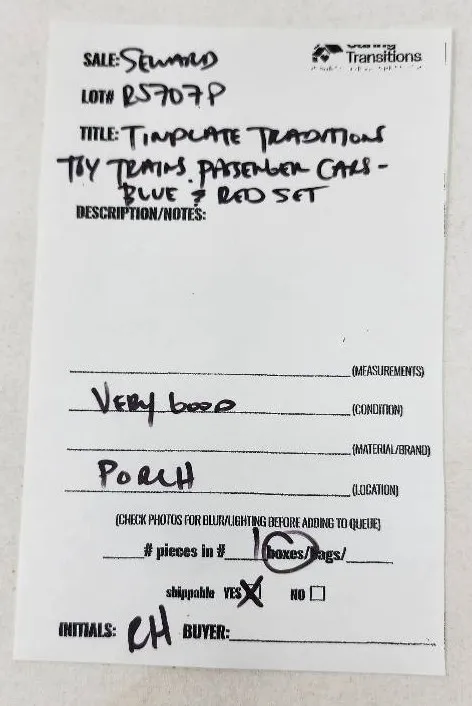 SALE: SEWARD
Transitions
LOT# RS707P
TITLE: TINPLATE TRADITIONS
TOY TRAINS. PASSENGER CARS -
BLUE & RED SET
DESCRIPTION/NOTES:
(MEASUREMENTS)
VERY GOOD (CONDITION)
(MATERIAL/BRAND)
PORCH (LOCATION)
(CHECK PHOTOS FOR BLUR/LIGHTING BEFORE ADDING TO QUEUE)
# pieces in # 1 boxes/bags/
shippable YES X NO
INITIALS: RH BUYER: